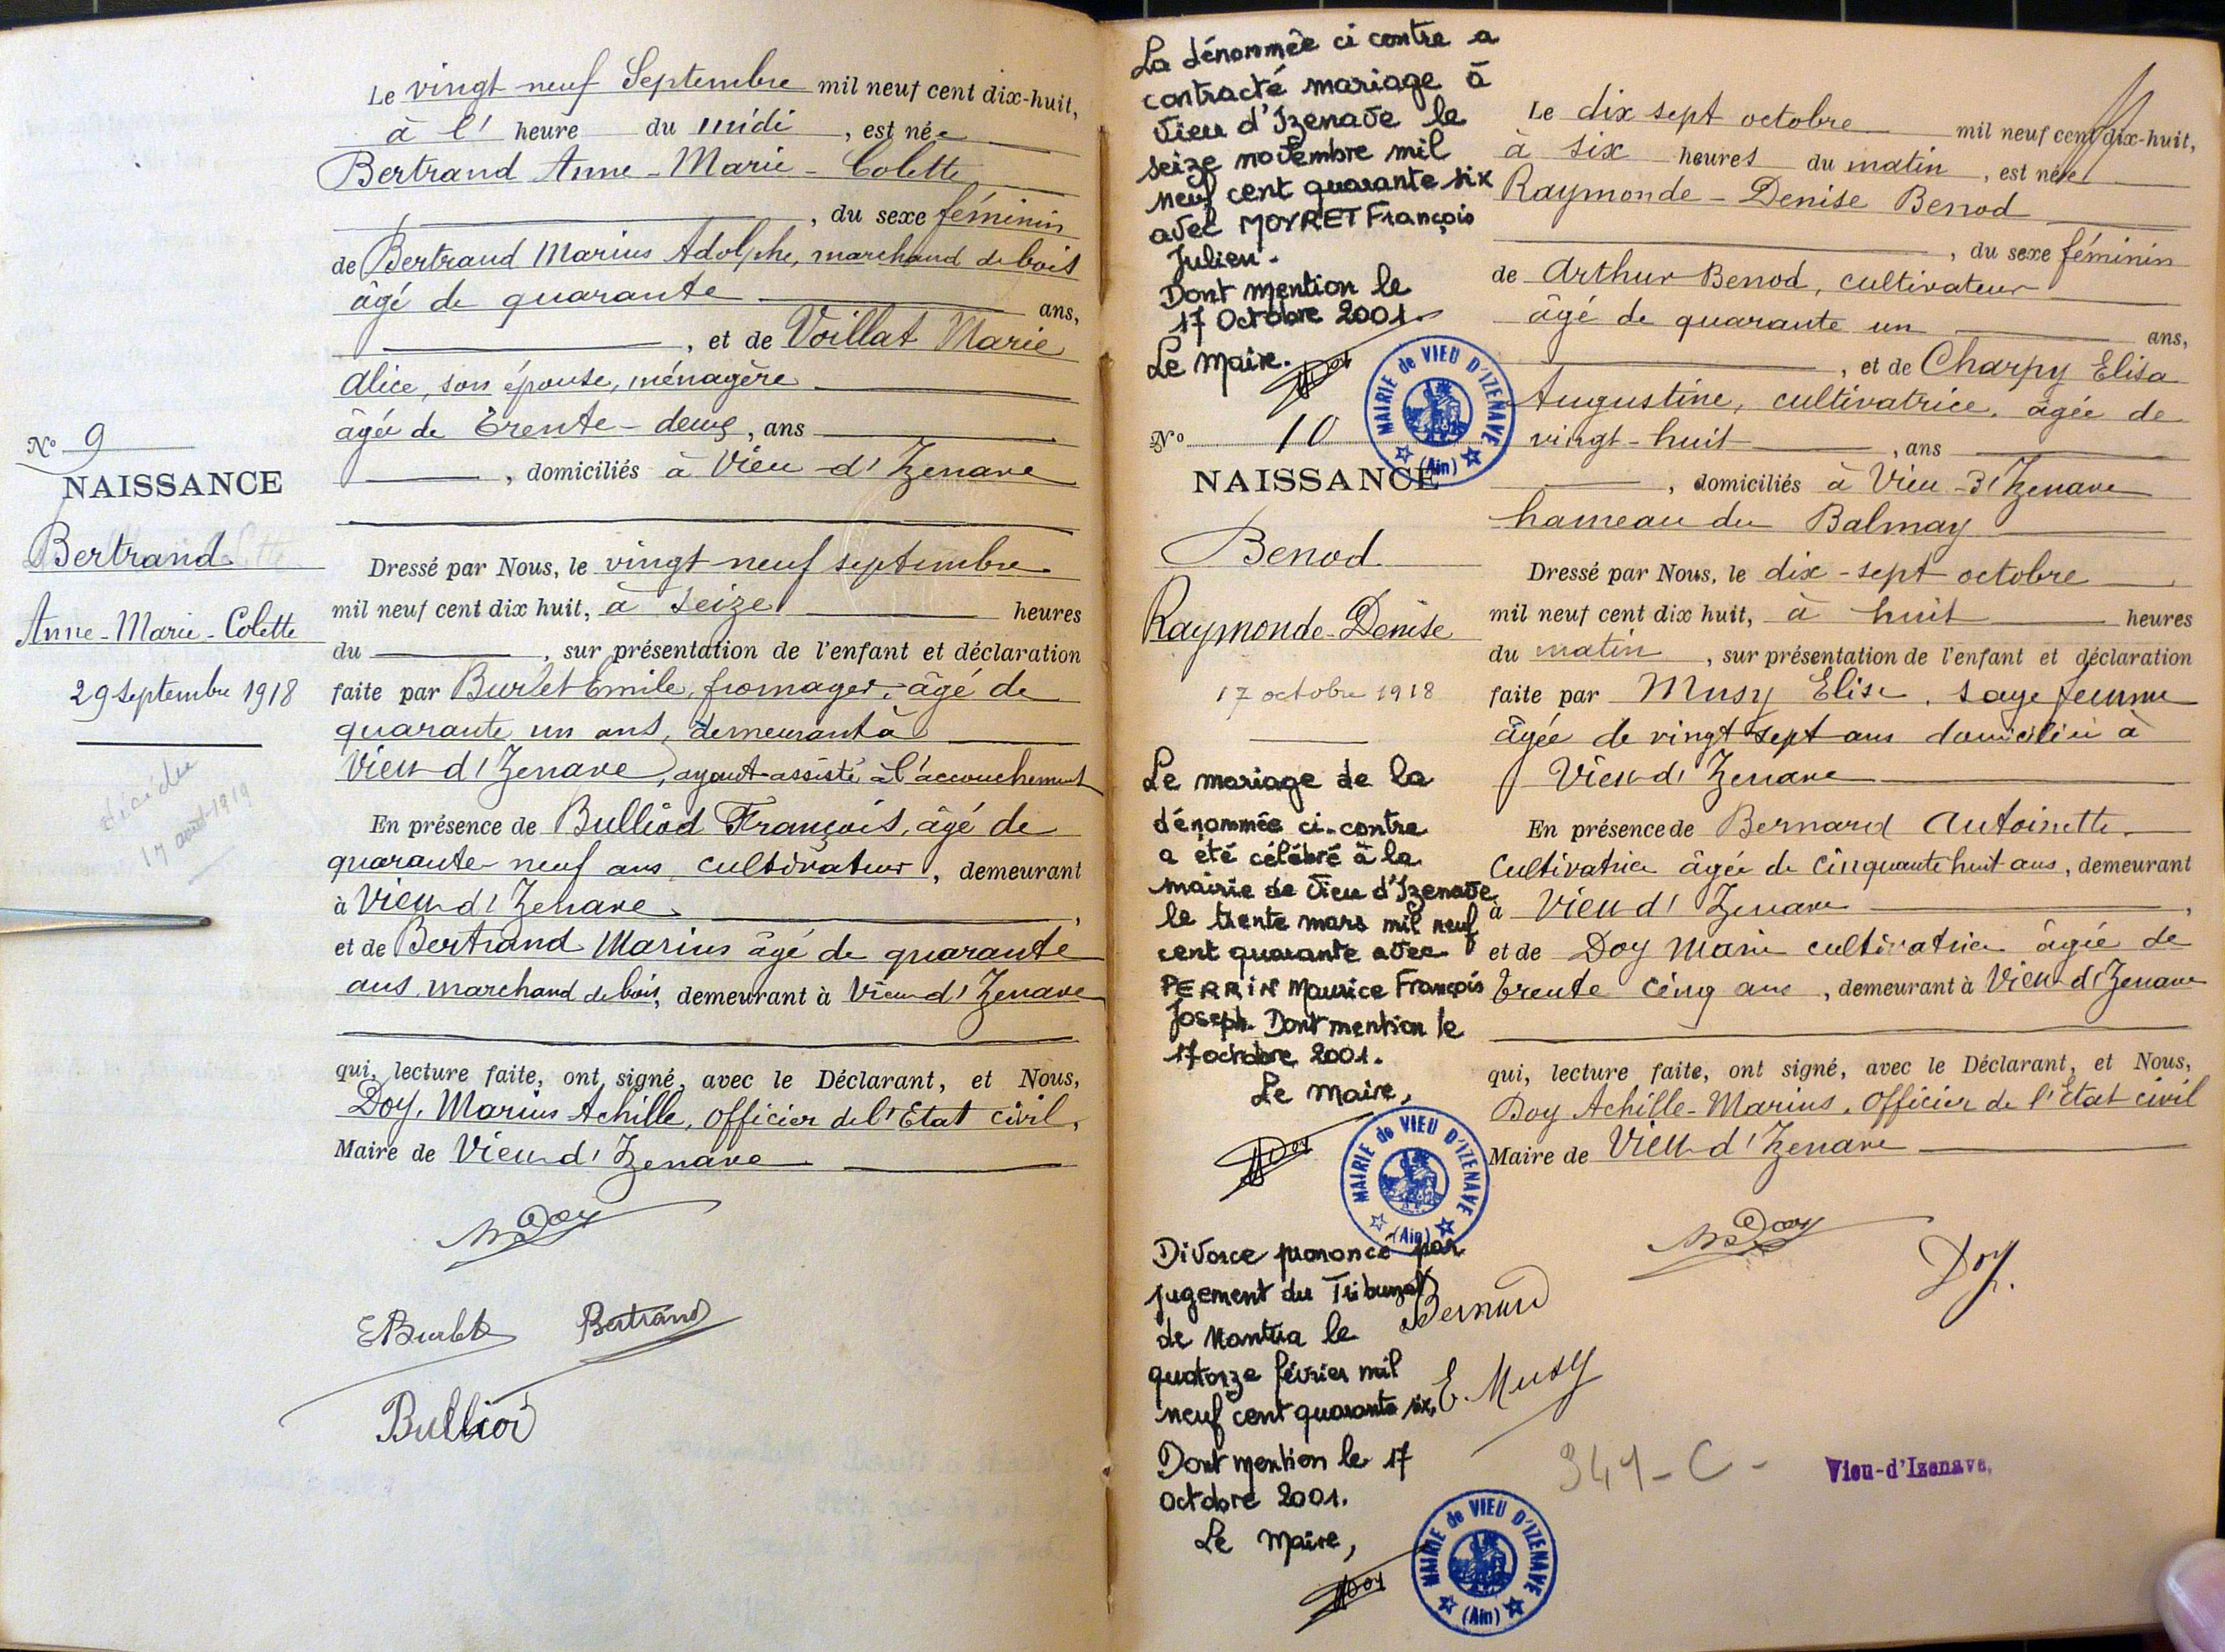 Le vingt-neuf Septembre mil neuf cent dix-huit,
à l' heure du midi, est née
Bertrand Anne-Marie-Colette
, du sexe féminin
de Bertrand Marius Adolphe, marchand de bois
âgé de quarante ans,
, et de Voillat Marie
Alice, son épouse, ménagère
âgée de trente-deux, ans
, domiciliés à Vieu-d'Izenave
Dressé par Nous, le vingt neuf septembre
mil neuf cent dix huit, à seize heures
du , sur présentation de l'enfant et déclaration
faite par Burlet Emile, fromager, âgé de
quarante un ans, demeurant à
Vieu d'Izenave, ayant assisté à l'accouchement
En présence de Bulliod François, âgé de
quarante-neuf ans, cultivateur, demeurant
à Vieu d'Izenave,
et de Bertrand Marius âgé de quarante
ans, marchand de bois, demeurant à Vieu d'Izenave
qui, lecture faite, ont signé, avec le Déclarant, et Nous,
Doy, Marius Achille, Officier de l'Etat civil,
Maire de Vieu d'Izenave
MDoy
EBurlet Bertrand
Bulliod
N° 9
NAISSANCE
Bertrand
Anne-Marie-Colette
29 septembre 1918
décédée
17 août 1919
La dénommée ci contre a
contracté mariage à
Vieu d'Izenave le
seize novembre mil
neuf cent quarante six
avec MOYRET François
Julien.
Dont mention le
17 Octobre 2001.
Le Maire.
MAIRIE de VIEU D'IZENAVE
(Ain)
N° 10
NAISSANCE
Benod
Raymonde-Denise
17 octobre 1918
Le mariage de la
dénommée ci-contre
a été célébré à la
mairie de Vieu d'Izenave
le trente mars mil neuf
cent quarante avec
PERRIN Maurice François
Joseph. Dont mention le
17 octobre 2001.
Le Maire,
MAIRIE de VIEU D'IZENAVE
(Ain)
Divorce prononcé par
jugement du Tribunal
de Nantua le
quatorze février mil
neuf cent quarante six.
Dont mention le 17
Octobre 2001.
Le Maire,
MAIRIE de VIEU D'IZENAVE
(Ain)
Le dix sept octobre mil neuf cent dix-huit,
à six heures du matin, est née
Raymonde-Denise Benod
, du sexe féminin
de Arthur Benod, cultivateur
âgé de quarante un ans,
, et de Charpy Elisa
Augustine, cultivatrice, âgée de
vingt-huit, ans
, domiciliés à Vieu-d'Izenave
hameau du Balmay
Dressé par Nous, le dix-sept octobre
mil neuf cent dix huit, à huit heures
du matin, sur présentation de l'enfant et déclaration
faite par Musy Elise, sage femme
âgée de vingt sept ans domiciliée à
Vieu d'Izenave
En présence de Bernard Antoinette
Cultivatrice âgée de cinquante huit ans, demeurant
à Vieu d'Izenave,
et de Doy Marie cultivatrice âgée de
trente cinq ans, demeurant à Vieu d'Izenave
qui, lecture faite, ont signé, avec le Déclarant, et Nous,
Doy Achille-Marius, Officier de l'Etat civil
Maire de Vieu d'Izenave
MDoy
Doy.
Bernard
E. Musy
341-C-
Vieu-d'Izenave,